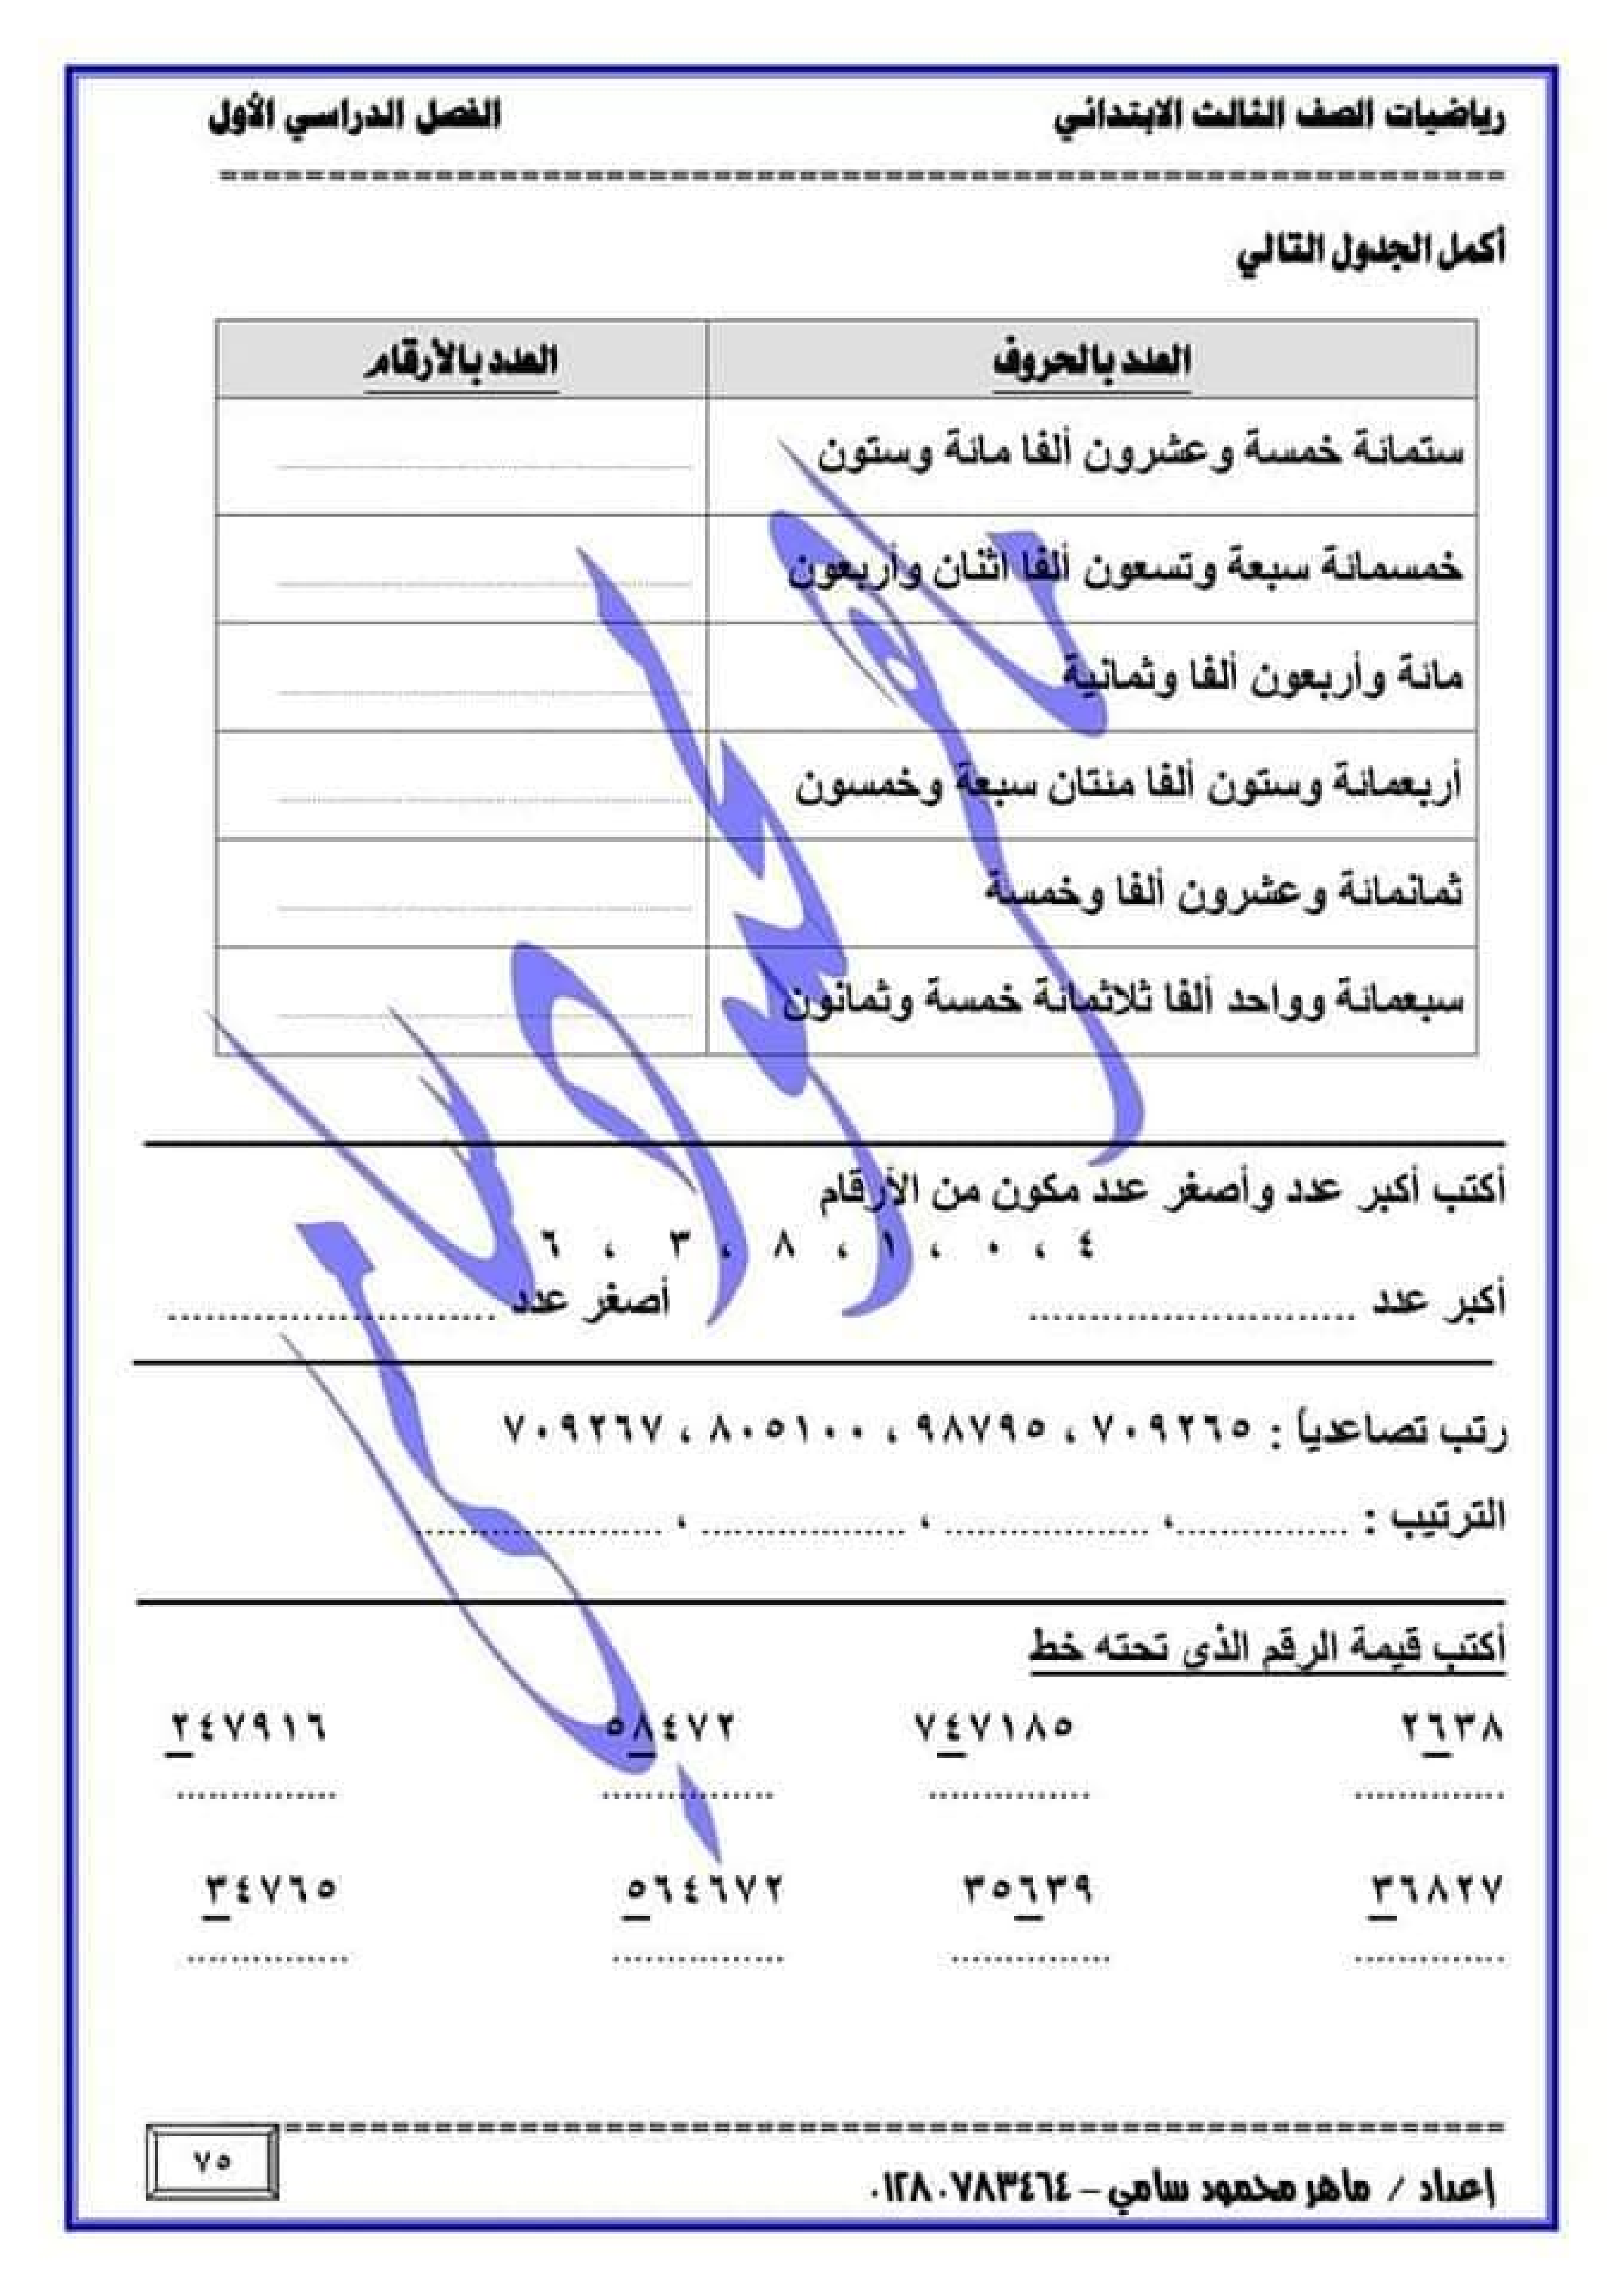 رياضيات الصف الثالث الابتدائي الفصل الدراسي الأول
أكمل الجدول التالي
العدد بالحروف العدد بالأرقام
ستمائة خمسة وعشرون ألفا مائة وستون
خمسمائة سبعة وتسعون ألفا اثنان وأربعون
مائة وأربعون ألفا وثمانية
أربعمائة وستون ألفا مئتان سبعة وخمسون
ثمانمائة وعشرون ألفا وخمسة
سبعمائة وواحد ألفا ثلاثمائة خمسة وثمانون
أكتب أكبر عدد وأصغر عدد مكون من الأرقام
٤ ، ٠ ، ١ ، ٨ ، ٣ ، ٦
أكبر عدد .......................... أصغر عدد ..........................
رتب تصاعدياً : ٧٠٩٢٦٥ ، ٩٨٧٩٥ ، ٨٠٥١٠٠ ، ٧٠٩٢٦٧
الترتيب : ................، .................. ، .................. ، ......................
أكتب قيمة الرقم الذي تحته خط
٢٦٣٨ ٧٤٧١٨٥ ٥٨٤٧٢ ٢٤٧٩١٦
.............. ............... ................ ...............
٣٦٨٢٧ ٣٥٦٣٩ ٥٦٤٦٧٢ ٣٤٧٦٥
.............. ............... ................ ...............
إعداد / ماهر محمود سامي – ٠١٢٨٠٧٨٣٤٦٤
٧٥